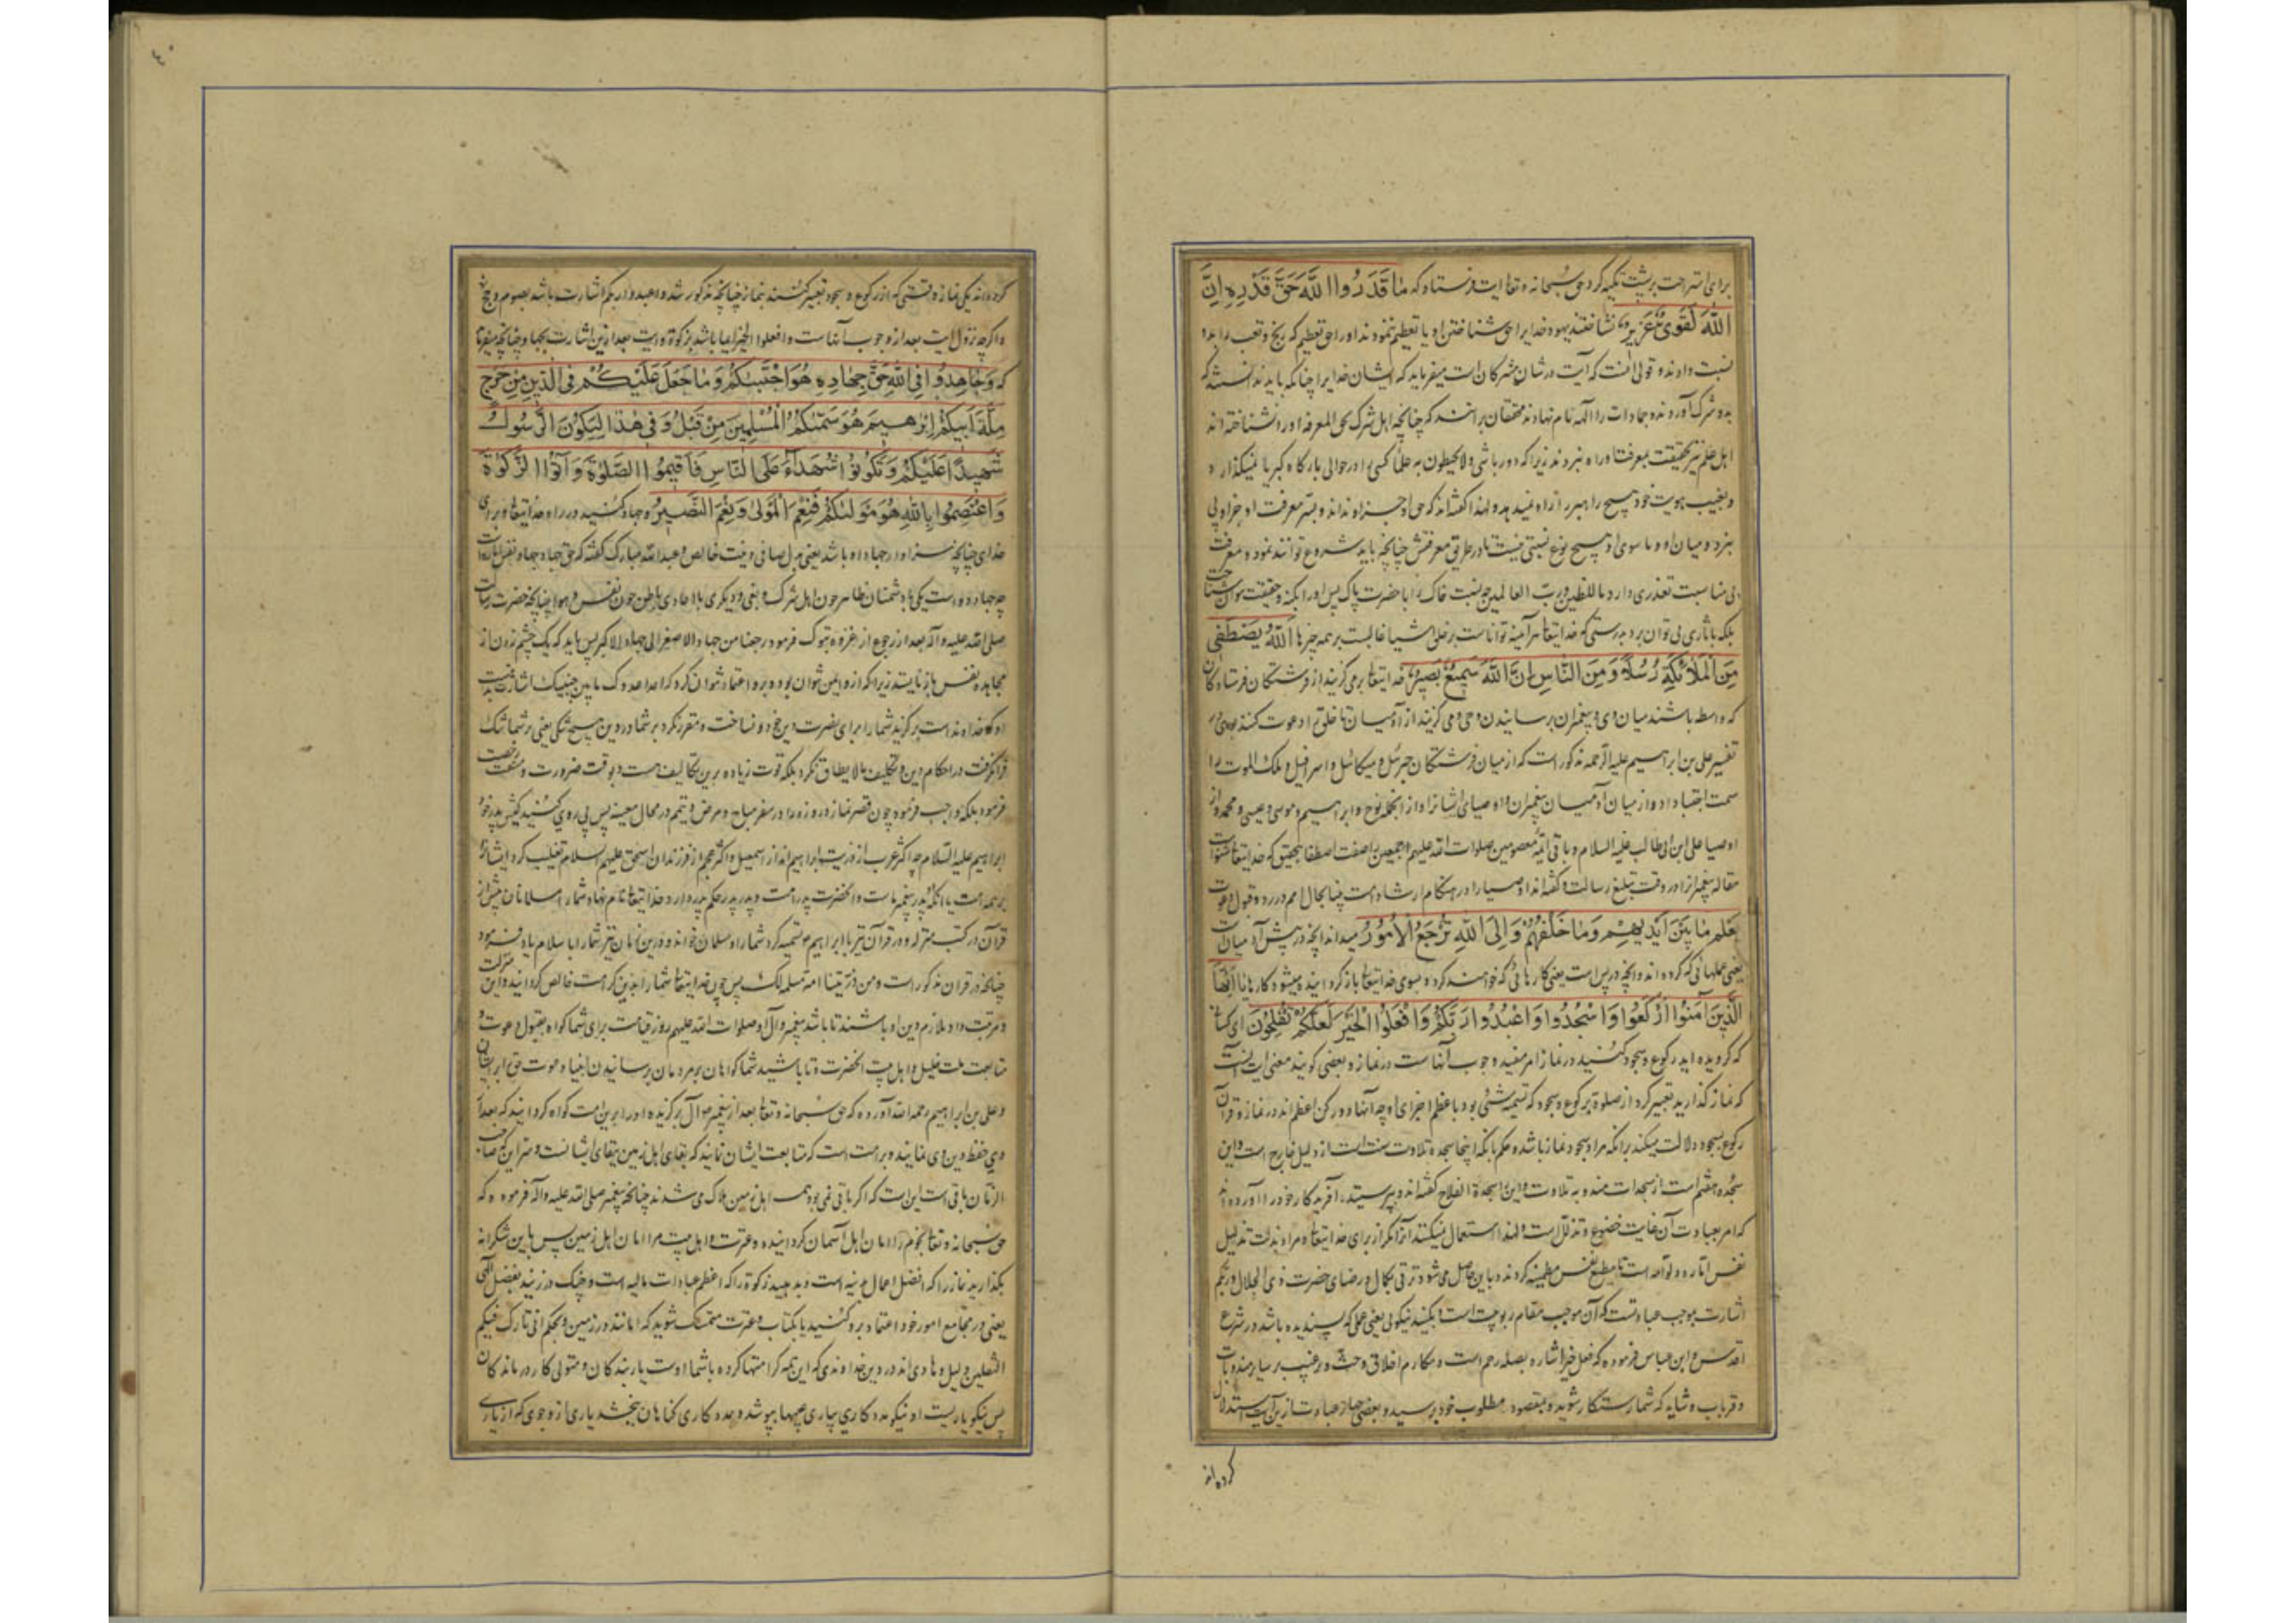 برای استراحت بر پشت تکیه کرد حق سبحانه و تعالی آیت فرستاد که مَا قَدَرُوا اللَّهَ حَقَّ قَدْرِهِ إِنَّ
اللَّهَ لَقَوِيٌّ عَزِيزٌ نشناختند یهود خدایرا حق شناختن او یا تعظیم ننمودند او را حق تعظیم که رنج و تعب را بدو
نسبت دادند و قولی آنست که آیت در شان مشرکان است میفرماید که ایشان خدایرا چنانکه باید ندانستند که
بدو شرک آوردند و جمادات را اله نام نهادند محققان برانند که چنانچه اهل شرک حق المعرفه او را نشناخته اند
اهل علم نیز بحقیقت معرفت او راه نبردند زیرا که دور باش ولا یحیطون به علما کسی را در حوالی بارگاه کبریا نمیگذارد
و بغیب هویت خود هیچ راهبر را راه نمیدهد و لهذا گفته‌اند که حق او جز او نداند و بسر معرفت او جز او پی
نبرد و میان او و ما سوی او هیچ نوع نسبتی نیست تا در طریق معرفتش چنانچه باید شروع توانند نمود و معرفت
بی مناسبت تعذری دارد ما للطین و رب العالمین چه نسبت خاک را با حضرت پاک پس او را بکنه و حقیقت نتوان شناخت
بلکه بآثاری پی توان برد بدرستی که خدایتعالی هرآینه تواناست بر خلق اشیا غالبست بر همه چیزها اللَّهُ يَصْطَفِي
مِنَ الْمَلَائِكَةِ رُسُلًا وَمِنَ النَّاسِ إِنَّ اللَّهَ سَمِيعٌ بَصِيرٌ خدایتعالی برمی‌گزیند از فرشتگان فرستادگان
که واسطه باشند میان وی و پیغمبران برسانیدن وحی و می گزیند از آدمیان تا خلق را دعوت کنند بوی در
تفسیر علی بن ابراهیم علیه الرحمه مذکور است که از میان فرشتگان جبرئیل و میکائیل و اسرافیل و ملک الموت را
سمت اجتبا داد و از میان آدمیان پیغمبران و اوصیای ایشانرا و از آنجمله نوح و ابراهیم و موسی و عیسی و محمد و از
اوصیا علی ابن ابی طالب علیه السلام و باقی ائمه معصومین صلوات الله علیهم اجمعین را صفت اصطفا بتحقیق که خدایتعالی شنواست
مقاله پیغمبر را در وقت تبلیغ رسالت و گفته‌اند اوصیا را در هنگام ارشاد امت بینا بحال امم در رد و قبول دعوت
يَعْلَمُ مَا بَيْنَ أَيْدِيهِمْ وَمَا خَلْفَهُمْ وَإِلَى اللَّهِ تُرْجَعُ الْأُمُورُ میداند آنچه در پیش آدمیان است
یعنی عملهائی که کرده اند و آنچه در پس است یعنی کارهائی که خواهند کرد و بسوی خدایتعالی بازگردانیده میشود کارها يَا أَيُّهَا
الَّذِينَ آمَنُوا ارْكَعُوا وَاسْجُدُوا وَاعْبُدُوا رَبَّكُمْ وَافْعَلُوا الْخَيْرَ لَعَلَّكُمْ تُفْلِحُونَ ای کسانی
که گرویده اید رکوع و سجود کنید در نماز امر مفید وجوب آنهاست در نماز و بعضی گویند معنی این است
که نماز گذارید تعبیر کرد از صلوة برکوع و سجود که تسمیه شئی بود باعظم اجزای او چه آنها دو رکن اعظم‌اند در نماز و قران
رکوع بسجود دلالت میکند برانکه مراد سجود نماز باشد و حکم بانکه اینجا سجده تلاوت سنت است از دلیل خارج است و این
سجده هفتم است از سجدات مندوبه تلاوت و این را سجدة الفلاح گفته‌اند و بپرستید آفریدگار خود را آورده‌اند
که امر بعبادت آن غایت خضوع و تذلل است و لهذا استعمال نمیکنند آنرا مگر از برای خدایتعالی و مراد بذلت تذلیل
نفس اماره و لوامه است تا مطیع نفس مطمئنه گردند و باین حاصل می شود ترقی بکمال و رضای حضرت ذی الجلال و ربکم
اشارت بموجب عبادتست که آن موجب مقام ربوبیت است و بکنید نیکوئی یعنی عملی که پسندیده باشد در شرع
اقدس و ابن عباس فرموده که فعل خیر اشاره بصله رحم است و مکارم اخلاق و حث و ترغیب بر سایر مندوبات
و قربات و شاید که شما رستگار شوید و بمقصود و مطلوب خود برسید و بعضی از عبادت ازین آیت استدلال
کرده‌اند
کرده‌اند یکی نماز وقتی که از رکوع و سجود تعبیر کنند بنماز چنانچه مذکور شد و اعبدوا ربکم اشارت باشد بصوم و حج
و اگرچه نزول آیت بعد از وجوب آنهاست و افعلوا الخیر ایما باشد بزکوة و آیت بعد ازین اشارت بجهاد چنانچه میفرماید
که وَجَاهِدُوا فِي اللَّهِ حَقَّ جِهَادِهِ هُوَ اجْتَبَاكُمْ وَمَا جَعَلَ عَلَيْكُمْ فِي الدِّينِ مِنْ حَرَجٍ
مِلَّةَ أَبِيكُمْ إِبْرَاهِيمَ هُوَ سَمَّاكُمُ الْمُسْلِمِينَ مِنْ قَبْلُ وَفِي هَذَا لِيَكُونَ الرَّسُولُ
شَهِيدًا عَلَيْكُمْ وَتَكُونُوا شُهَدَاءَ عَلَى النَّاسِ فَأَقِيمُوا الصَّلَوةَ وَآتُوا الزَّكَوةَ
وَاعْتَصِمُوا بِاللَّهِ هُوَ مَوْلَاكُمْ فَنِعْمَ الْمَوْلَى وَنِعْمَ النَّصِيرُ و جهاد کنید در راه خدایتعالی و برای
خدای چنانچه سزاوار جهاد او باشد یعنی بدل صافی و نیت خالص و عبدالله مبارک گفته که حق جهاد جهاد نفس اماره است
چه جهاد دو است یکی با دشمنان ظاهر چون اهل شرک و بغی و دیگری با اعادی باطن چون نفس و هوا چنانچه حضرت رسالت
صلی الله علیه و آله بعد از رجوع از غزوه تبوک فرمود رجعنا من جهاد الاصغر الی جهاد الاکبر پس باید که یک چشم زدن از
مجاهده نفس باز نایستد زیرا که ازو ایمن نتوان بود و برو اعتماد نتوان کرد که اعدا عدوک ما بین جنبیک اشارت بدوست
او که خداوند است برگزید شما را برای نصرت دین خود و نساخت و مقرر نکرد بر شما در دین هیچ تنگی یعنی بر شما تنگ
فرا نگرفت در احکام دین و تکلیف ما لا یطاق نکرد بلکه قوت زیاده برین تکالیف هست و بوقت ضرورت و مشقت رخصت
فرمود بلکه واجب فرموده چون قصر نماز و روزه را در سفر مباح و مرض و تیمم در محال معینه پس پی روی کنید کیش پدر خود
ابراهیم علیه السلام چه اکثر عرب از ذریت ابراهیم اند از اسمعیل و اکثر عجم از فرزندان اسحق علیهم السلام تغلیب کرد ایشانرا
بر همه امت یا آنکه پدر پیغمبر ماست و آنحضرت پدر امت و پدر پدر حکم پدر دارد و خدایتعالی نام نهاد شما را مسلمانان پیش از
قرآن در کتب منزله و در قرآن نیز یا ابراهیم تسمیه کرد شما را و مسلمان خوانده و درین زمان نیز شما را باسلام یاد فرمود
چنانچه در قران مذکور است و من ذریتنا امة مسلمة لک پس چون خدایتعالی شما را بدین کرامت خالص گردانید و این منزلت
و مرتبت داد ملازم دین او باشند تا باشد پیغمبر و آل او صلوات الله علیهم روز قیامت برای شما گواه بقبول دعوت و
متابعت ملت خلیل و اهل بیت آنحضرت و تا باشید شما گواهان بر مردمان برسانیدن انبیا دعوت حق را بر ایشان
و علی بن ابراهیم رحمه الله آورده که حق سبحانه و تعالی بعد از پیغمبر آل برگزیده او را برین امت گواه گردانید که بعد از
وی حفظ دین وی نمایند و بر امت است که متابعت ایشان نمایند که بقای اهل زمین ببقای ایشانست و سر این که صاحب
الزمان باقی است این است که اگر باقی نمی بود همه اهل زمین هلاک می شدند چنانچه پیغمبر صلی الله علیه و آله فرموده که
حق سبحانه و تعالی نجوم را امان اهل آسمان گردانیده و عترت و اهل بیت مرا امان اهل زمین پس باین شکرانه
بگذارید نماز را که افضل اعمال بدنیه است و بدهید زکوة را که اعظم عبادات مالیه است و چنگ در زنید بفضل الهی
یعنی در مجامع امور خود اعتماد برو کنید یا بکتاب و عترت متمسک شوید که امانند در زمین و بحکم انی تارک فیکم
الثقلین دلیل و هادی‌اند در دین خداوندی که این همه کرامتها کرده با شما اوست یار بندگان و متولی کار درماندگان
پس نیکو یاریست او نیکو مددکاری بیاری عیبها بپوشد و بمددکاری گناهان ببخشد یاری از وجوی که از یاری